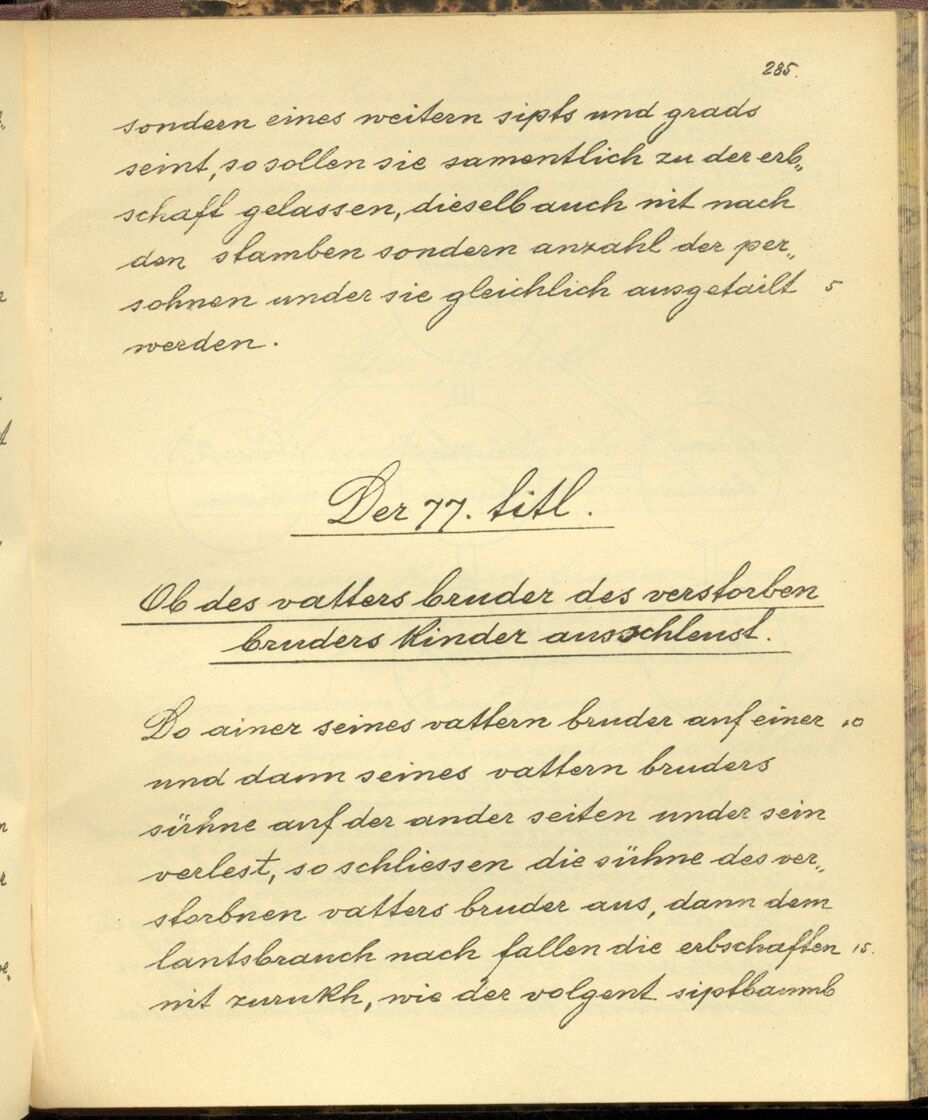 285.
sondern eines weitern sipts und grads
seint, so sollen sie samentlich zu der erb„
schaft gelassen, dieselb auch nit nach
den stamben sondern anzahl der per„
sohnen under sie gleichlich ausgetailt 5
werden.
Der 77. titl.
Ob des vatters bruder des verstorben
bruders Kinder ausschleust.
Do ainer seines vattern bruder auf einer 10
und dann seines vattern bruders
sühne auf der ander seiten under sein
verlest, so schliessen die sühne des ver„
storbnen vatters bruder aus, dann dem
lantsbrauch nach fallen die erbschaften 15.
nit zurukh, wie der volgent siptbaumb